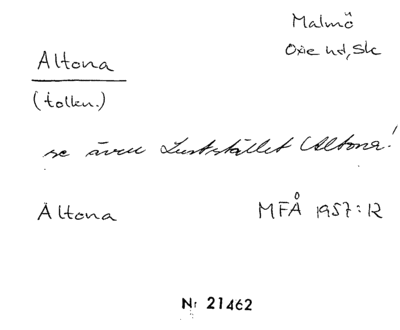 Malmö
Oxie hd, Sk
Altona
(tolkn.)
se även Luststället Altona!
Altona
MFÅ 1957:12
Nr 21462